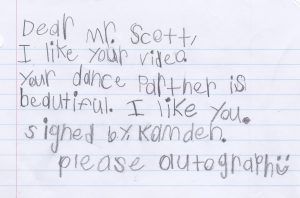 Dear Mr. Scott,
I like your video.
Your dance partner is
beautiful. I like you.
signed by, Kamden.
please autograph